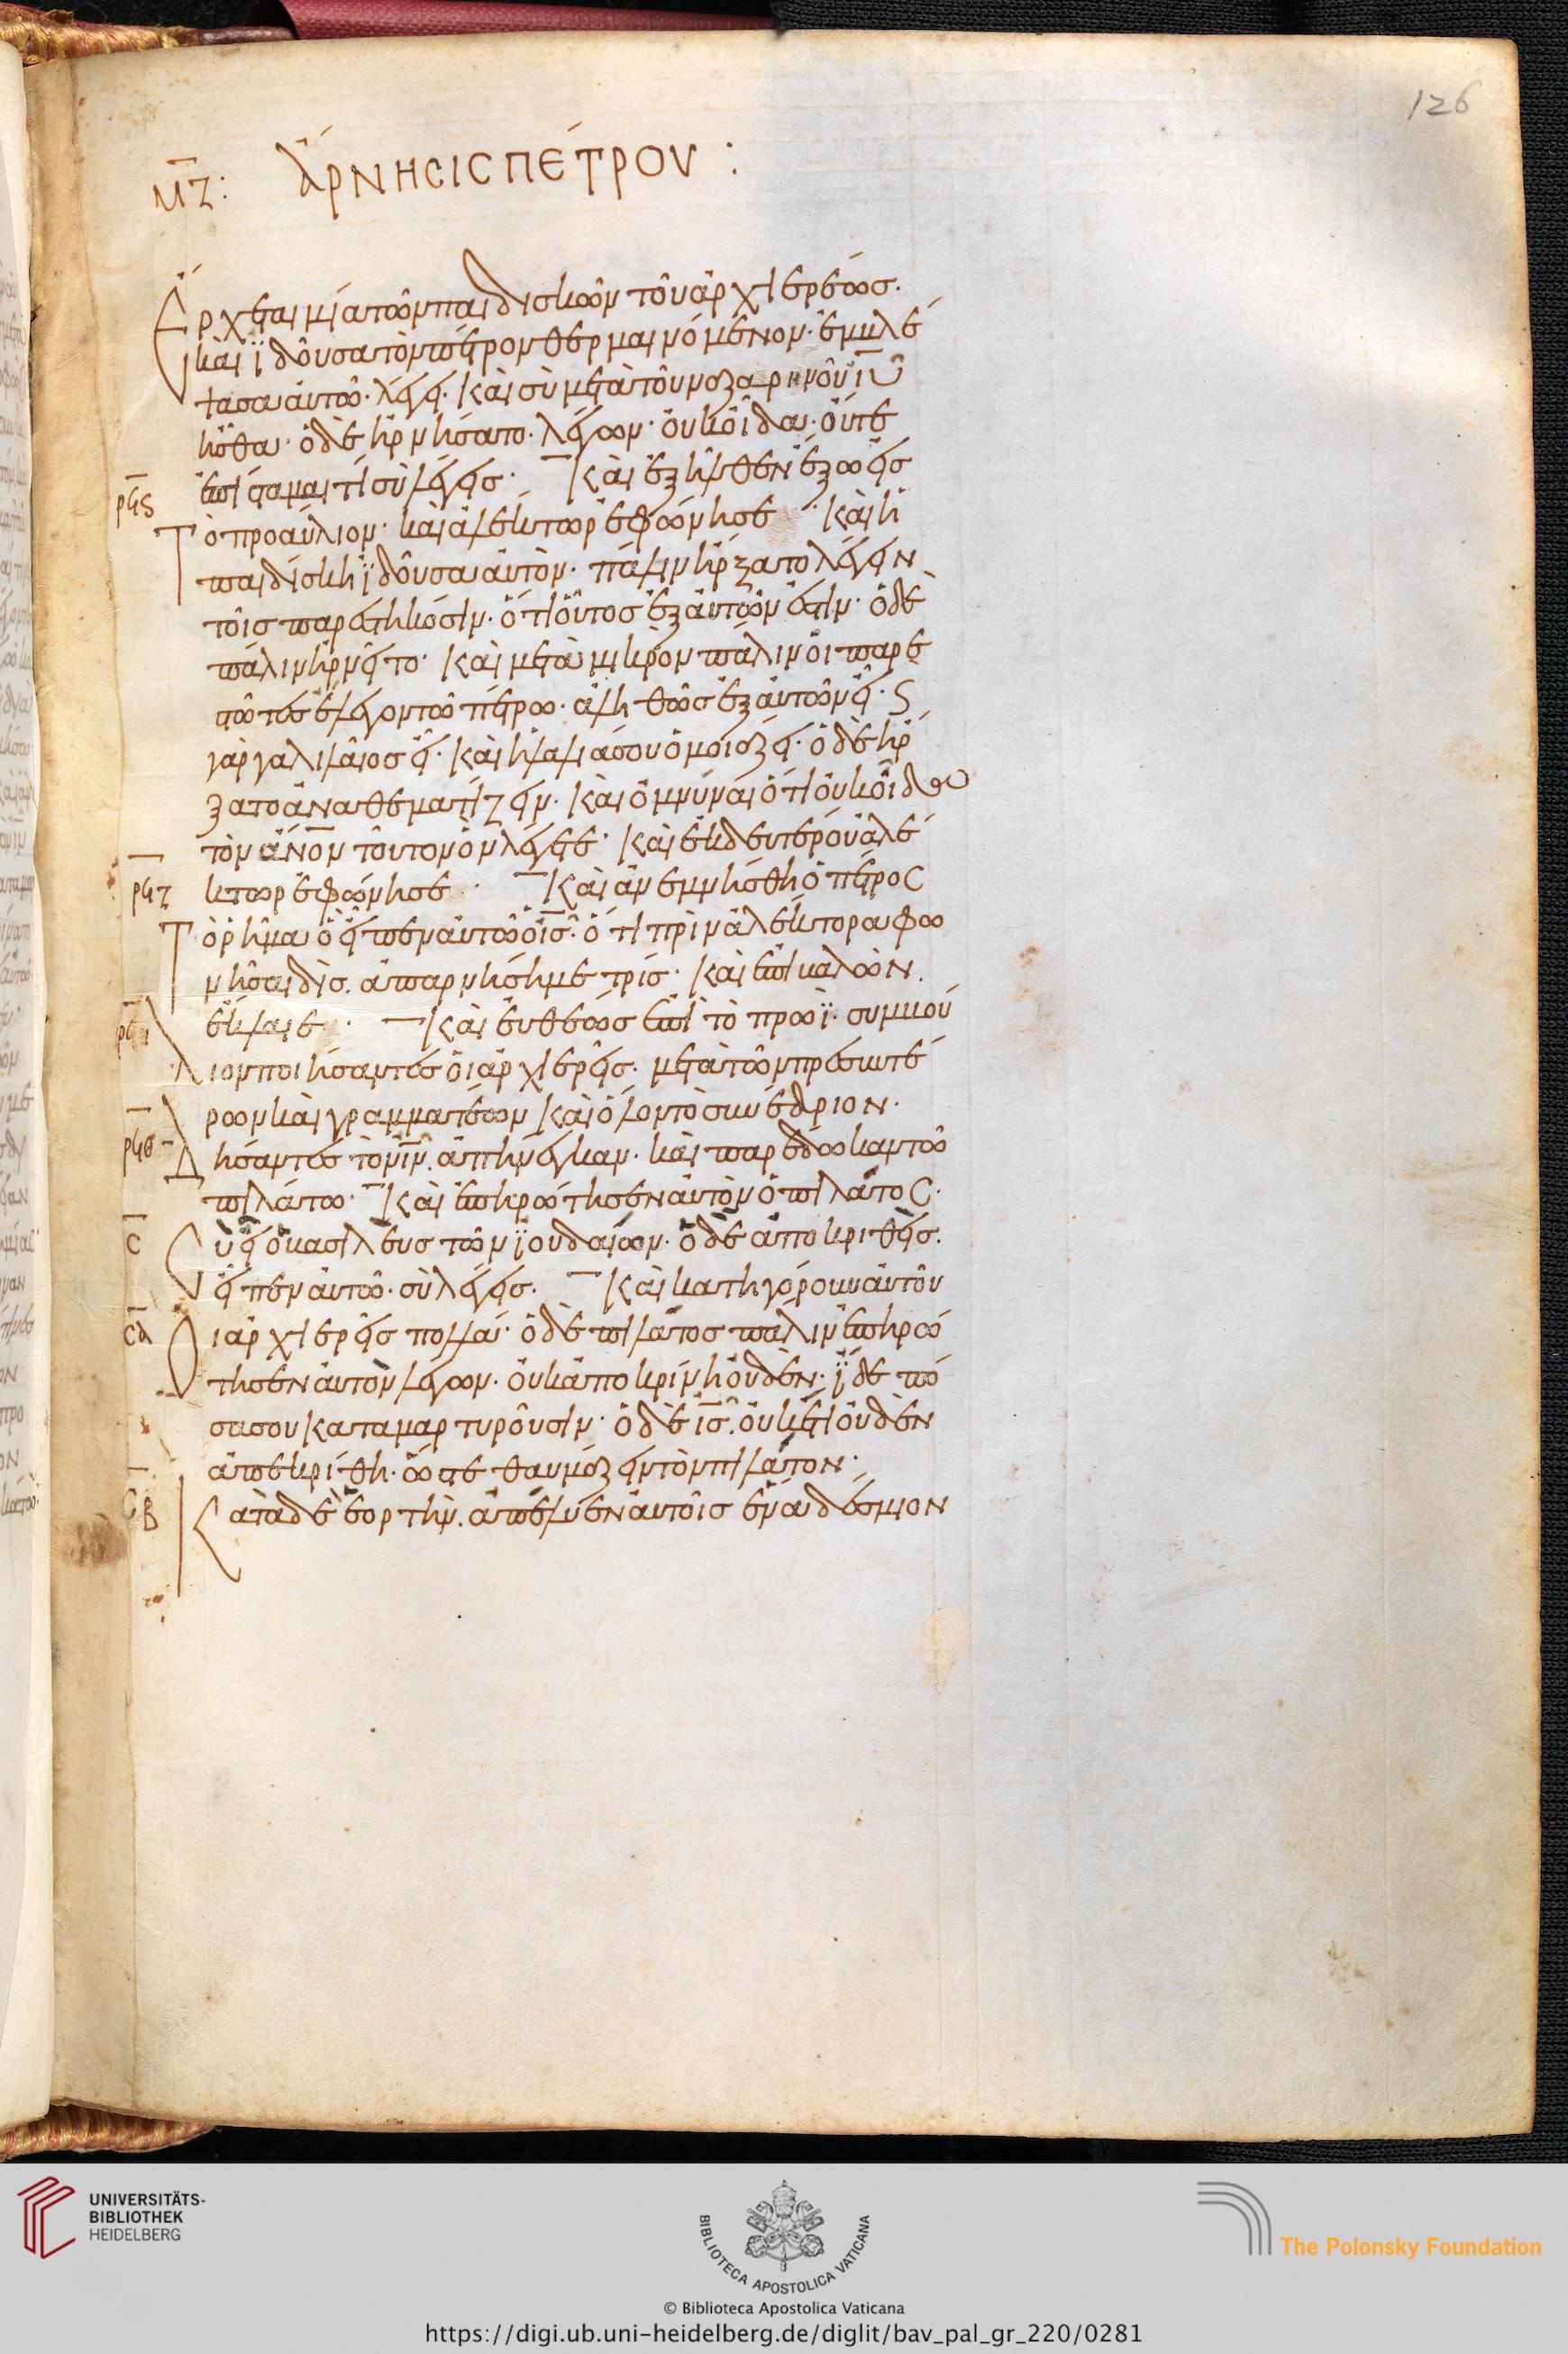 126
μζ: ἄρνησις πέτρου :
Ἔρχεται μία τῶν παιδισκῶν τοῦ ἀρχιερέως·
καὶ ἰδοῦσα τὸν πέτρον θερμαινόμενον· ἐμβλέ
ψασα αὐτῶ· λέγει· καὶ σὺ μετὰ τοῦ ναζαρηνοῦ ιυ
ἦσθα· ὁ δὲ ἠρνήσατο· λέγων· οὐκ οἶδα· οὔτε
ρϟς ἐπίσταμαι τί σὺ λέγεις· Καὶ ἐξῆλθεν ἔξω εἰς
Τὸ προαύλιον· καὶ ἀλέκτωρ ἐφώνησε· Καὶ ἡ
παιδίσκη ἰδοῦσα αὐτὸν· πάλιν ἤρξατο λέγειν
τοῖς παρεστηκόσιν· ὅτι οὗτος ἐξ αὐτῶν ἐστιν· ὁ δὲ
πάλιν ἠρνεῖτο· Καὶ μετὰ μικρὸν πάλιν οἱ παρε
στῶτες ἔλεγον τῶ πέτρω· ἀληθῶς ἐξ αὐτῶν εἶ· ϛ
γὰρ γαλιλαῖος εἶ· καὶ ἡ λαλιά σου ὁμοιάζει· ὁ δὲ ἤρ
ξατο ἀναθεματίζειν· καὶ ὀμνύναι ὅτι οὐκ οἶδα
τὸν ἄνον τοῦτον ὃν λέγετε· Καὶ ἐκ δευτέρου ἀλέ
ρϟζ κτωρ ἐφώνησε· Καὶ ἀνεμνήσθη ὁ πέτρος
Τὸ ῥῆμα ὃ εἶπεν αὐτῶ ὁ ις· ὅτι πρὶν ἀλέκτορα φω
νῆσαι δὶς· ἀπαρνήση με τρίς· Καὶ ἐπιβαλὼν·
ρϟη ἔκλαιε· Καὶ εὐθέως ἐπὶ τὸ πρωῒ· συμβού
λιον ποιήσαντες οἱ ἀρχιερεῖς· μετὰ τῶν πρεσβυτέ
ρων καὶ γραμματέων καὶ ὅλον τὸ συνέδριον·
ρϟθ Δήσαντες τὸν ιν· ἀπήνεγκαν· καὶ παρέδωκαν τῶ
πιλάτω· Καὶ ἐπηρώτησεν αὐτὸν ὁ πιλάτος·
ς Σὺ εἶ ὁ βασιλεὺς τῶν ἰουδαίων· ὁ δὲ ἀποκριθεὶς·
εἶπεν αὐτῶ· σὺ λέγεις· Καὶ κατηγόρουν αὐτοῦ
σα Οἱ ἀρχιερεῖς πολλά· ὁ δὲ πιλάτος πάλιν ἐπηρώ
τησεν αὐτὸν λέγων· οὐκ ἀποκρίνη οὐδέν· ἴδε πό
σα σου καταμαρτυροῦσιν· ὁ δὲ ις· οὐκέτι οὐδὲν
ἀπεκρίθη· ὥστε θαυμάζειν τὸν πιλάτον·
σβ Κατὰ δὲ ἑορτὴν· ἀπέλυεν αὐτοῖς ἕνα δέσμιον
UNIVERSITÄTS-
BIBLIOTHEK
HEIDELBERG
BIBLIOTECA APOSTOLICA VATICANA
The Polonsky Foundation
© Biblioteca Apostolica Vaticana
https://digi.ub.uni-heidelberg.de/diglit/bav_pal_gr_220/0281